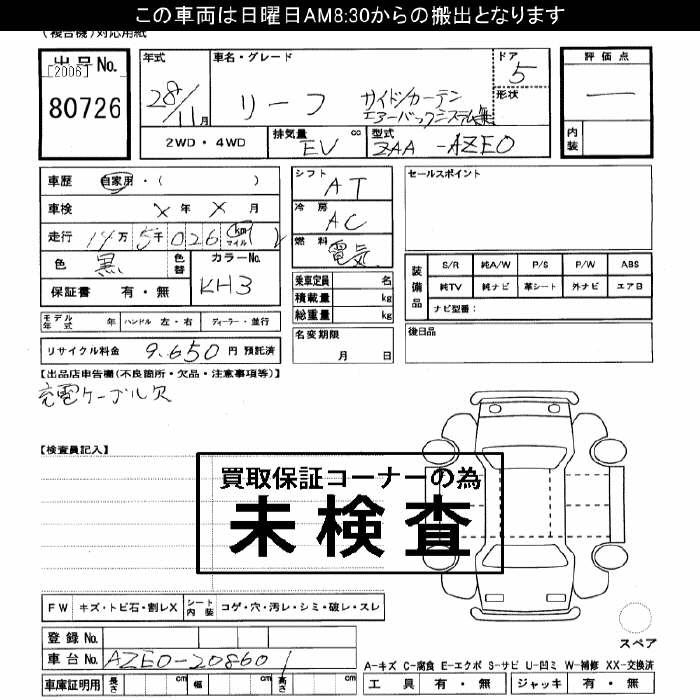 この車両は日曜日AM8:30からの搬出となります
(複合機)対応用紙
出品No.
[2006]
80726
年式
28/11月
車名・グレード
リーフ サイド/カーテン
エアーバックシステム無
ドア
5
形状
評価点
—
内装
2WD・4WD
排気量 cc
EV
型式
ZAA-AZE0
車歴 自家用・( )
車検 X年X月
走行 14万5千026km マイル
色 黒
色替
カラーNo.
KH3
保証書 有・無
モデル年式 年 ハンドル 左・右 ディーラー・並行
リサイクル料金 9.650円 預託済
シフト
AT
冷房
AC
燃料
電気
乗車定員 名
積載量 kg
総重量 kg
名変期限
月 日
セールスポイント
装備品
S/R 純A/W P/S P/W ABS
純TV 純ナビ 革シート 外ナビ エアB
ナビ型番:
後日品
【出品店申告欄(不良箇所・欠品・注意事項等)】
充電ケーブル欠
【検査員記入】
買取保証コーナーの為
未検査
FW キズ・トビ石・割レX シート内装 コゲ・穴・汚レ・シミ・破レ・スレ
登録No.
車台No. AZE0-208601
車庫証明用 長さ cm 幅 cm 高さ cm
スペア
A-キズ C-腐食 E-エクボ S-サビ U-凹ミ W-補修 XX-交換済
工具 有・無 ジャッキ 有・無